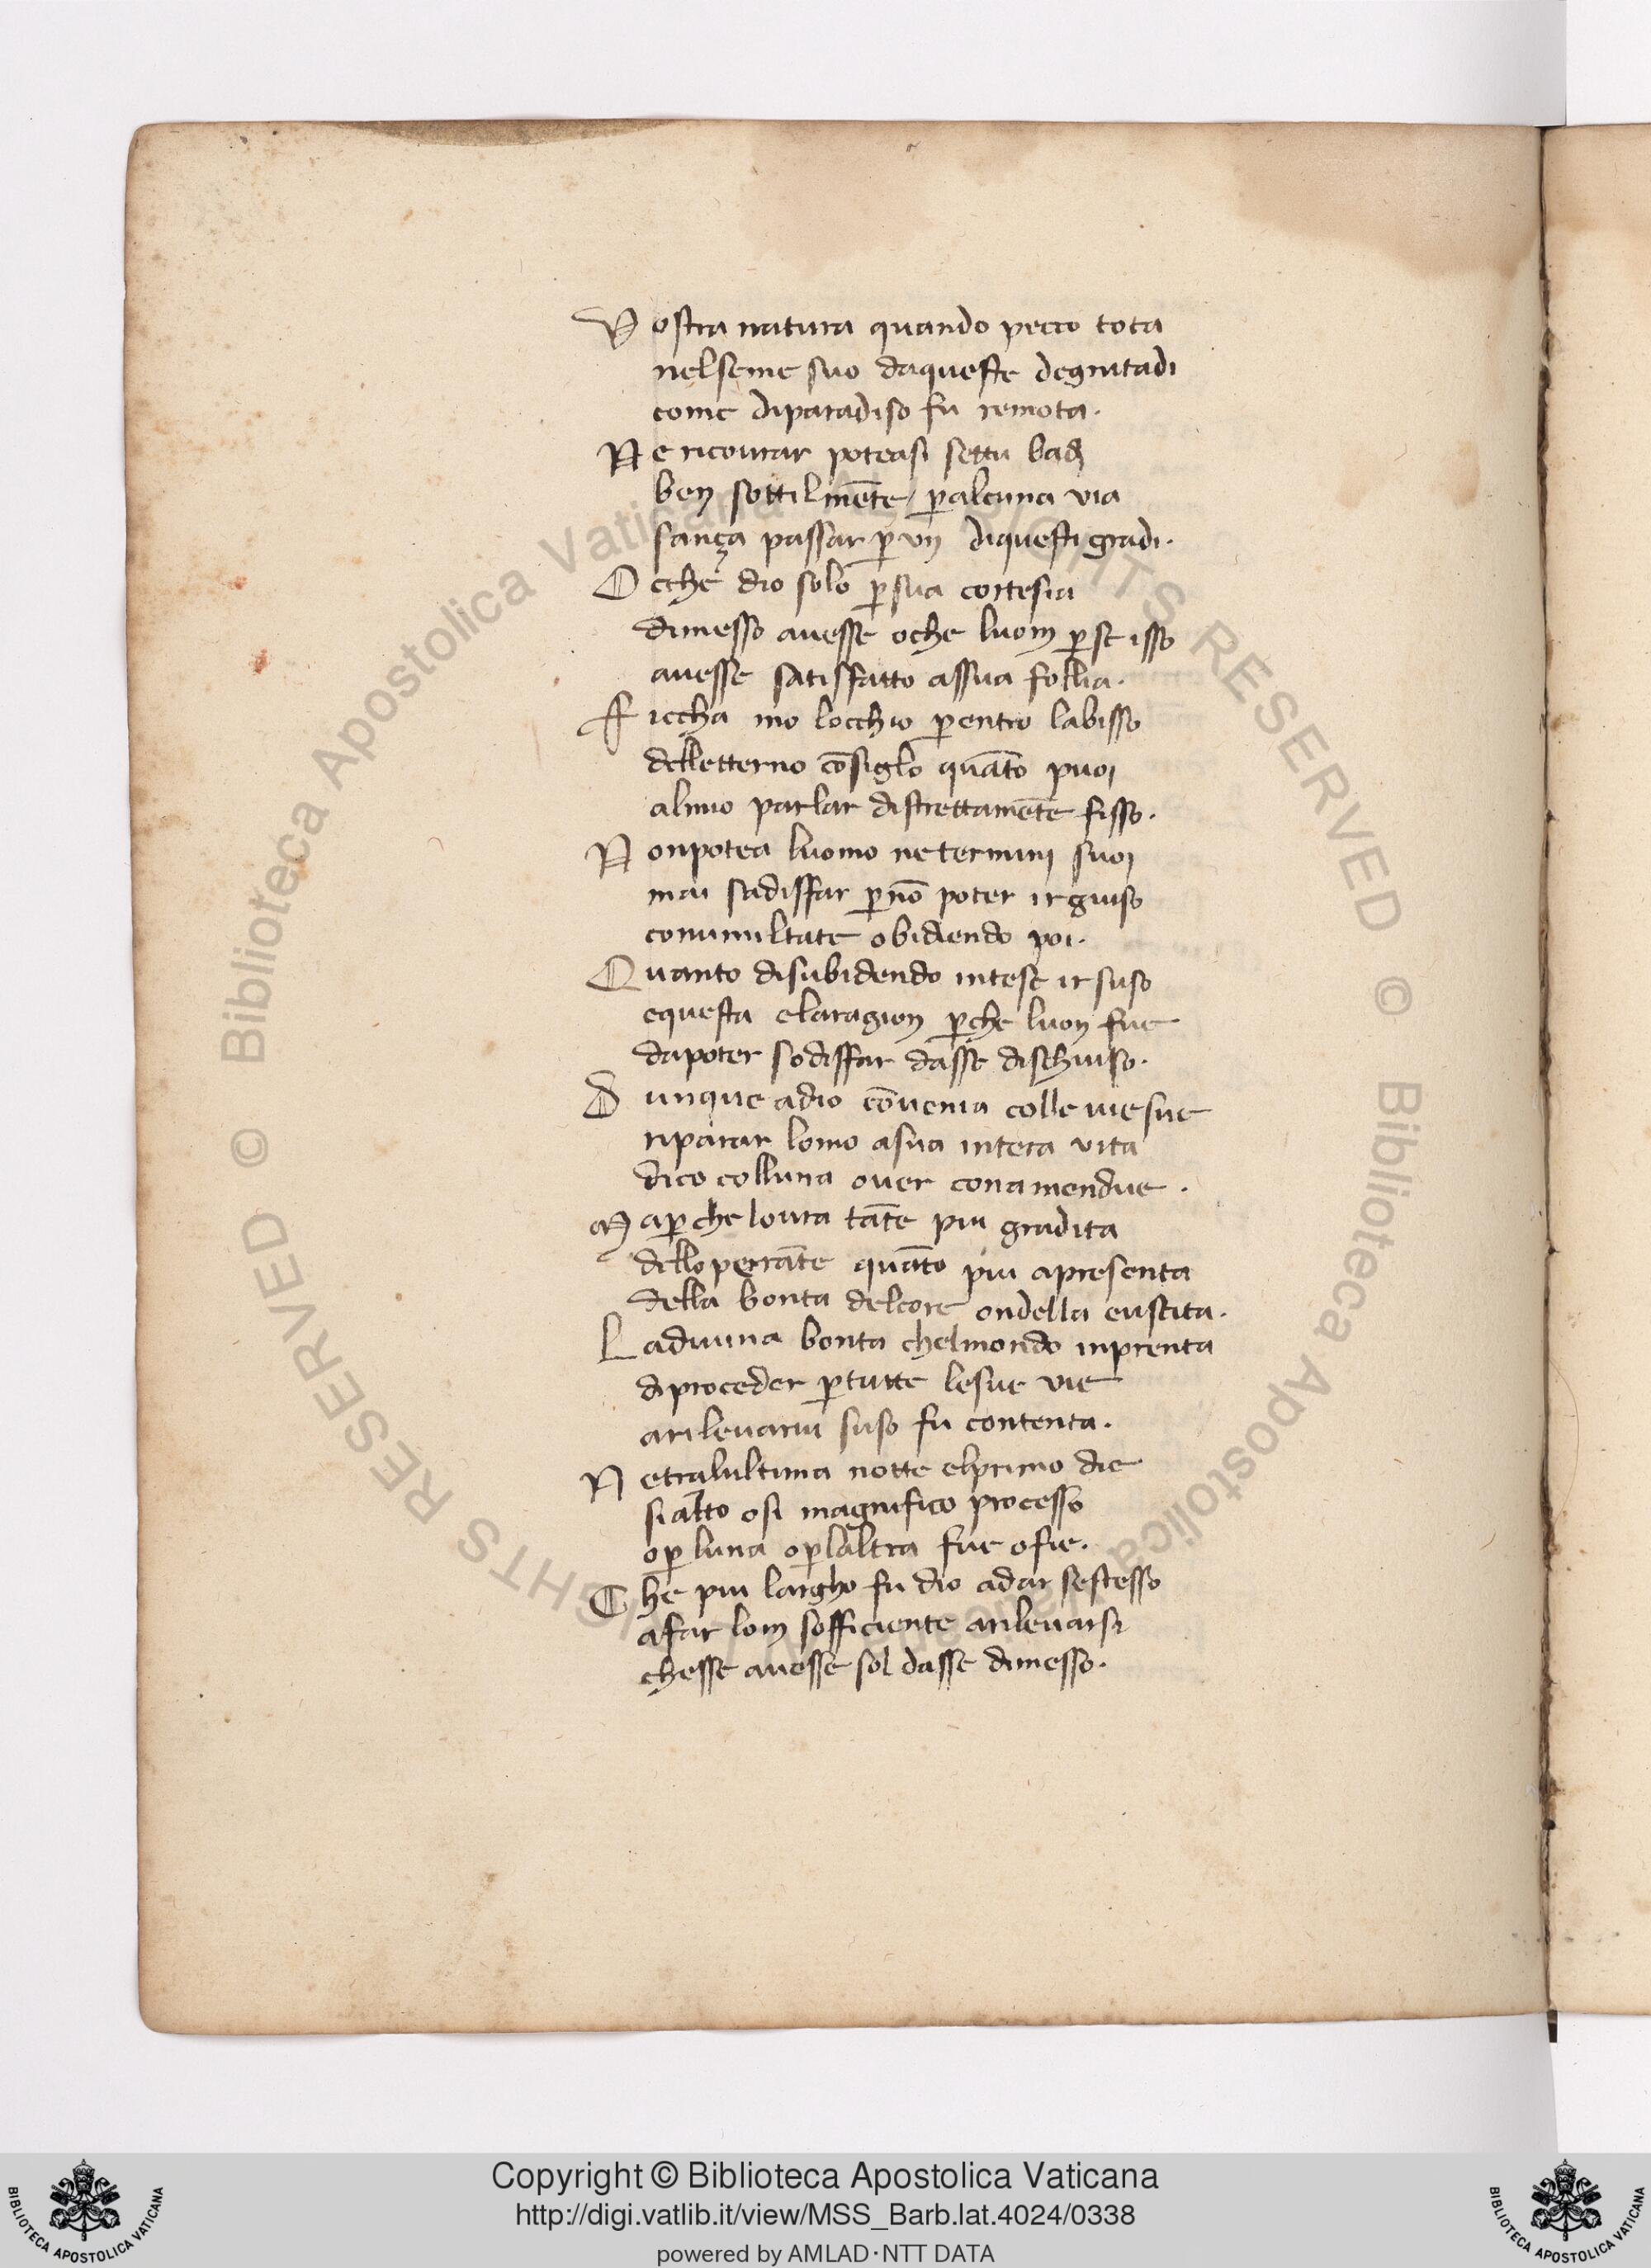 Vostra natura quando pecco tota
nelseme suo daqueste degnitadi
come diparadiso fu remota.
Ne ricourar poteasi settu badi
ben sottilmēte ꝑalcuna via
sança passar ꝑ vn diquesti gradi.
Ocche dio solo ꝑsua cortesia
dimesso auesse oche luom ꝑse isso
auesse satisfatto assua follia.
Ficcha mo locchio ꝑentro labisso
delletterno cōsiglo quāto puoi
almio parlar distrettamēte fisso.
Nonpotea luomo netermini suoi
mai sadisffar ꝑnō poter irgiuso
conumiltate obidiendo poi.
Quanto disubidendo intese irsuso
equesta elaragion ꝑche luon fue
dapoter sodisffar dasse dischiuso.
Dunque adio cōuenia colle uiesue
riparar lomo asua intera vita
dico colluna ouer conamendue.
Maꝑche loura tāte piu gradita
delloperrāte quāto piu apresenta
della bonta delcore ondella euscita.
Ladiuina bonta chelmondo inprenta
diproceder ꝑtutte lesue vie
arileuarui suso fu contenta.
Netralultima notte elprimo die
sialtto osi magnifico processo
oꝑ luna oꝑlaltra fue ofie.
Che piu largho fu dio adar sestesso
afar lom sofficiente arileuarsi
chesse auesse sol dasse dimesso.
Copyright © Biblioteca Apostolica Vaticana
http://digi.vatlib.it/view/MSS_Barb.lat.4024/0338
powered by AMLAD·NTT DATA
BIBLIOTECA APOSTOLICA VATICANA
BIBLIOTECA APOSTOLICA VATICANA